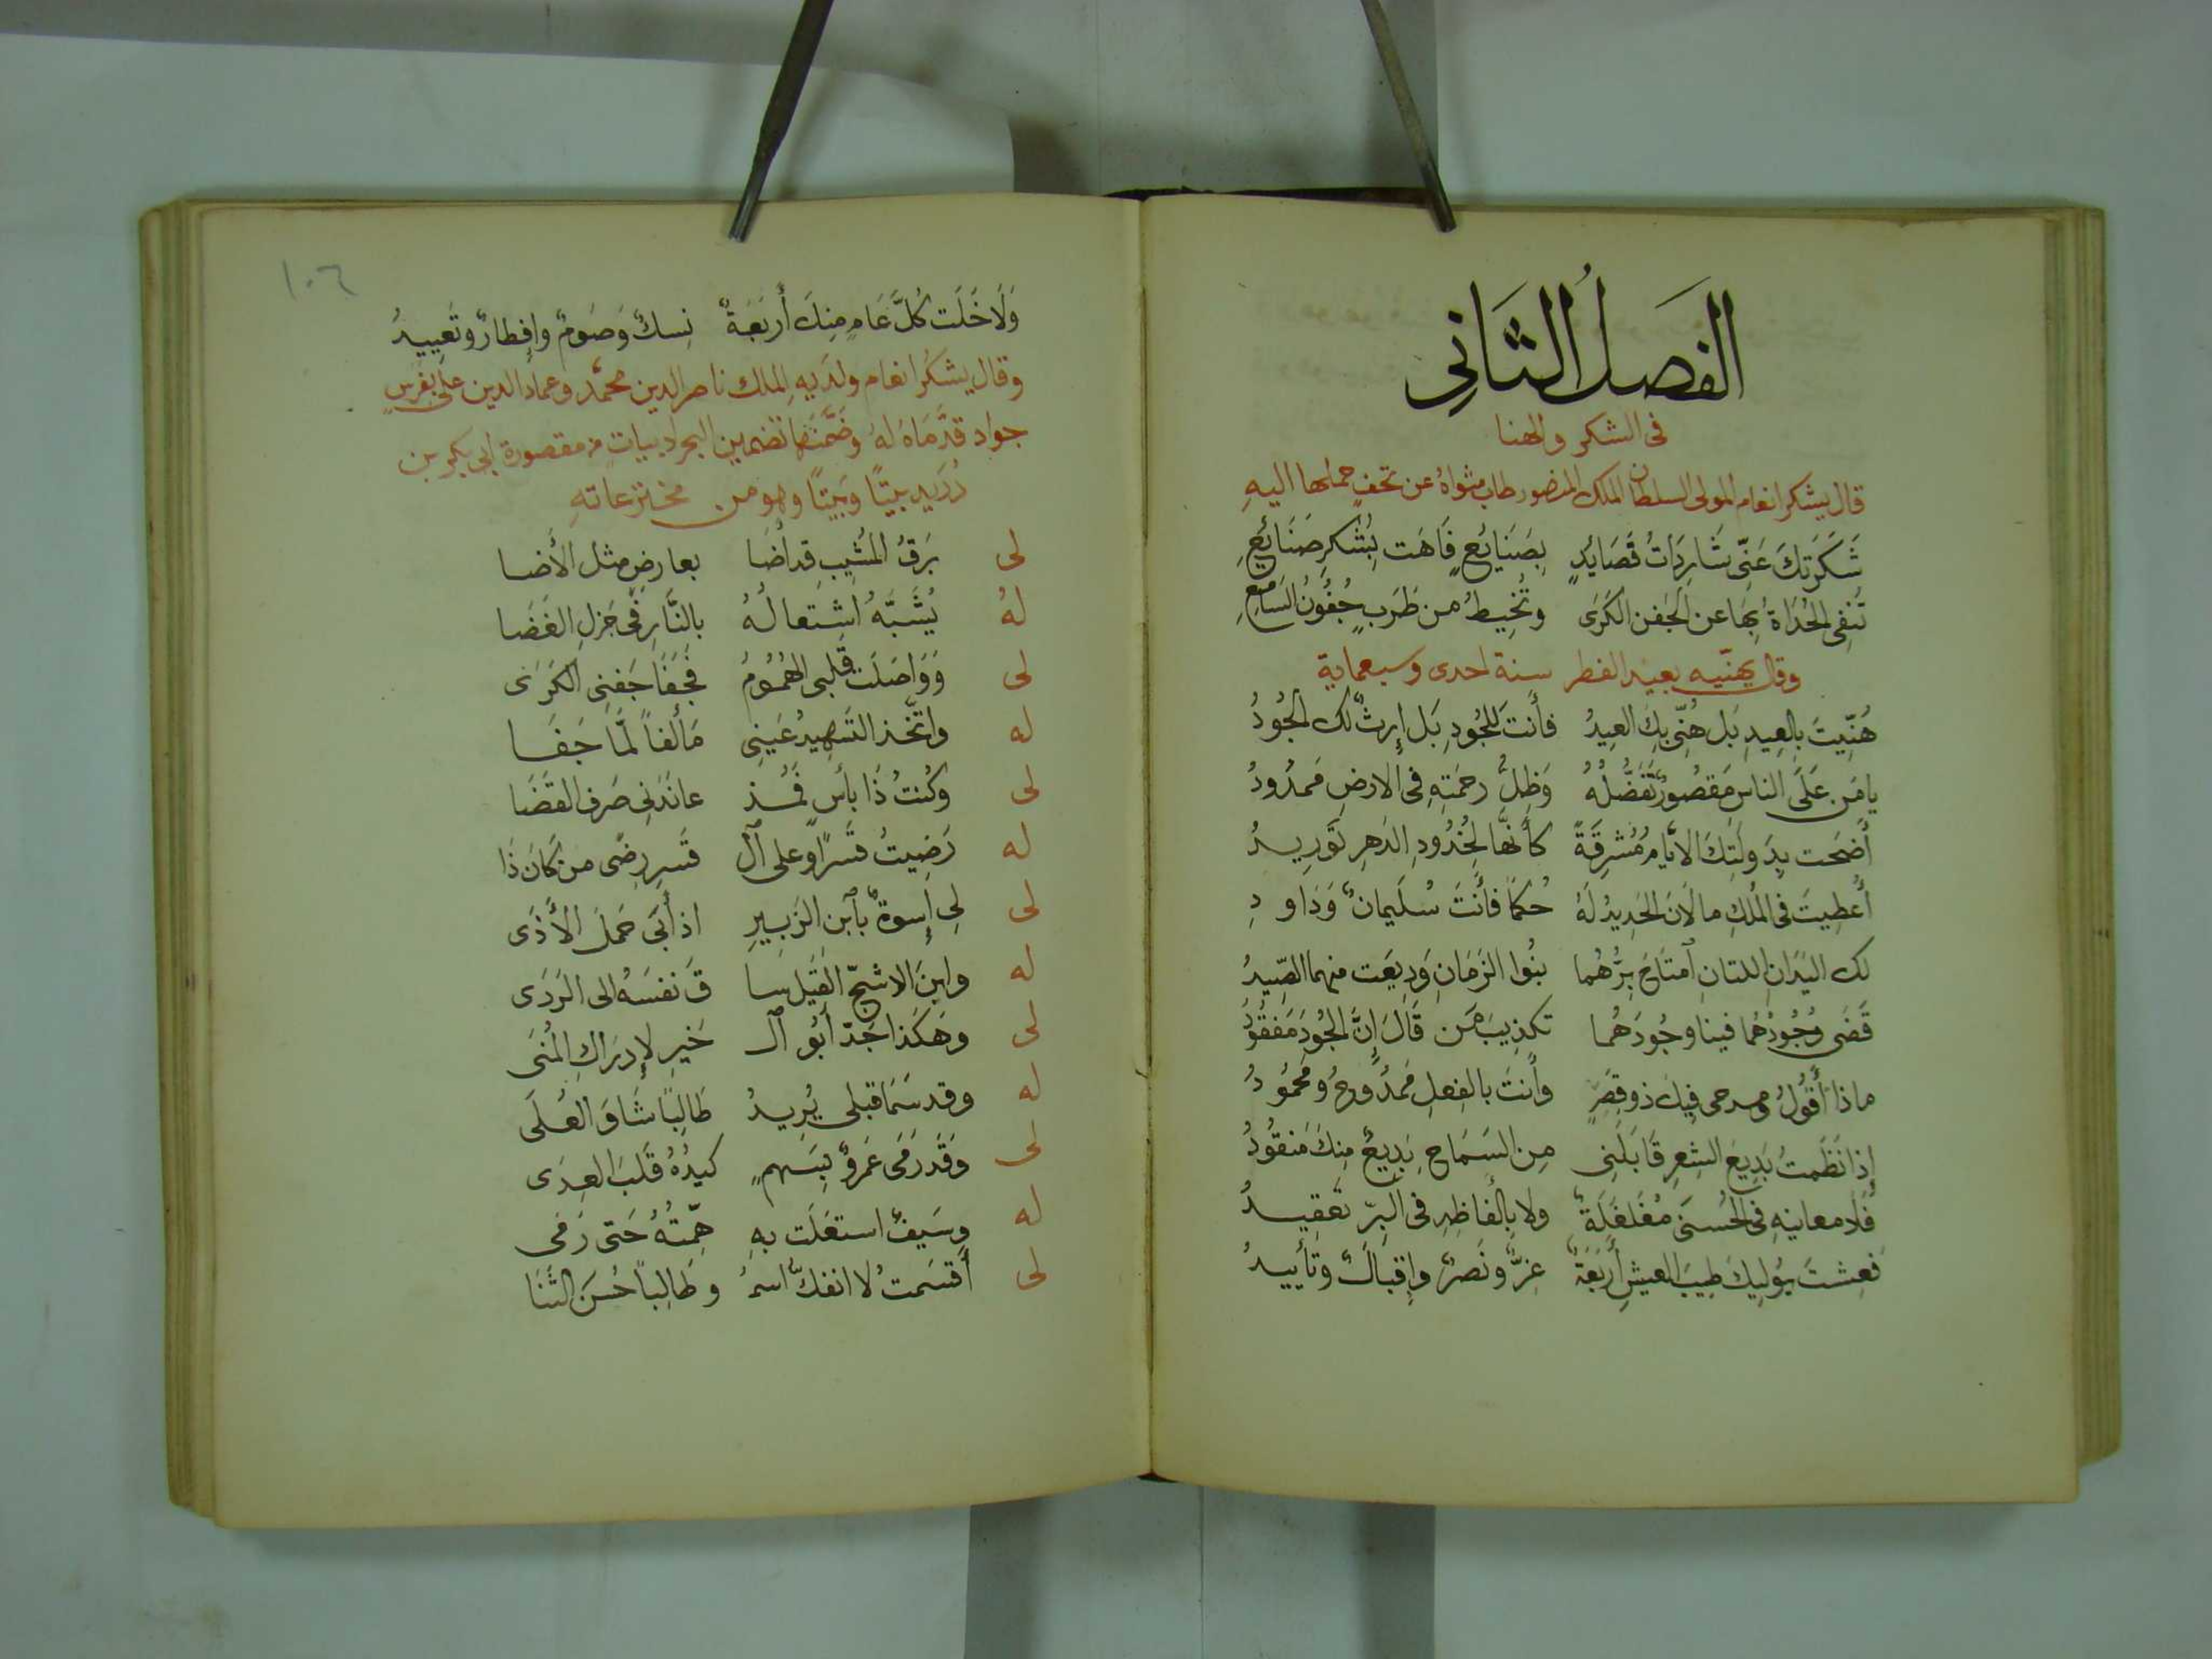 الفَصلُ الثَّانِى
فى الشكر والهنا
قال يشكر انعام المولى السلطان الملك المنصور طاب مثواهُ عن تحفٍ حملها اليهِ
شَكَرَتكَ عَنّى شَارِدَاتُ قَصَايُدٍ بِصَنَايُعٍ فَاهَت بِشُكرِ صَنَائِعِ
تَنفِى الحُدَاةُ بِهَا عن الجَفن الكَرَى وتُخِيطُ من طَرَبٍ جُفُونُ السَّامِعِ
وقال يهنّيه بعيد الفطر سنة احدى وسبعماية
هُنِّيتَ بِالعِيدِ بَل هُنّى بِكَ العِيدُ فأَنتَ لِلجُودِ بَل إِرثٌ لك الجُودُ
يا مَن عَلَى الناسِ مَقصُورٌ تَفَضُّلُهُ وَظِلُّ رحمَتِهِ فى الارضِ مَمدُودُ
أَضحَت بِدَولَتِكَ الايّامُ مُشرِقَةً كأَنهَّا لِخُدُودِ الدَهرِ تَورِيدُ
أُعطِيتَ فى المُلكِ ما لَانَ الحَدِيدُ لَهُ حُكمًا فأَنتَ سُلَيمانٌ وَدَاودِ
لك اليَدَانِ اللتانِ اَمتَاحَ بِرَّهُما بنُوا الزَمَانِ وَرِيعَت منهما الصِّيدُ
قَضَى وُجُودُهُما فينا وجُودَهُما تكذِيبَ مَن قَالَ إِنَّ الجُودَ مَفقُودُ
ماذا أَقُولُ ومدحى فِيكَ ذو قِصَرٍ وأَنتَ بالفِعلِ مَمدُوحٌ ومَحمُودُ
إِذا نَظَمتُ بَدِيعَ الشِعرِ قَابَلَنِى مِن السَمَاحِ بَدِيعٌ مِنكَ مَنقُودُ
فَلَا معانيهِ فى الحُسنَى مُغَلغَلَةٌ ولا بِأَلفاظِهِ فى البِرّ تَعقِيدُ
فَعِشتَ يُولِيكَ طِيبَ العيشِ أَربَعَةٌ عِزٌّ ونَصرٌ وإِقبالٌ وتأييدُ
١٠٦
وَلَا خَلَت كُلَّ عَامٍ مِنكَ أَربَعَةٌ نِسكٌ وَصَومٌ وإِفطارٌ وتَعِييدُ
وقال يشكر انعام ولدَيهِ الملك ناصر الدين محمّد وعماد الدين على بفَرَسٍ
جواد قدَّمَاهُ لهُ وضَمَّنَها تضمين البحر ابياتٍ من مقصورة ابى بكر بن
دُرَيد بيتًا وبَيتًا وهو من مخترعاتهِ
لى بَرقُ المُشِيبِ قد أَضَا بعارضٍ مثل الأَضا
لهُ يُشَبَّهُ اشتِعالُهُ بالنَّارِ فى جَزلِ الغَضَا
لى وَوَاصَلَت قلبى الهُمُومُ فَجَفَا جَفنِى الكَرَى
له واتَّخذ التَسهِيدُ عَينِى مَألفاً لَمَّا جَفَا
لى وكُنتُ ذَا بأسٍ فَمُذ عانَدَنِى صَرفُ القَضَا
له رَضِيتُ قَسرًا وعلى اَل قَسرِ رِضًى من كَانَ ذَا
لى لِى إِسوةٌ بِاَبنِ الزَبِيرِ اذ أَبَى حَملَ الأَذَى
له وابنَ الاشجّ القَيل سا قَ نفسَهُ الى الرَدَى
لى وهَكَذا جَدّ اَبُو اَل خَيرِ لإِدرَاكِ المُنَى
له وقد سَمَا قبلى يُرِيدُ طَالِبًا شَاوَ العُلَى
لى وَقَد رَمَى عَمرٌو بِسَهمِ كيدُهُ قَلبَ العِدَى
له وسَيفٌ استعَلَت بهِ هِمّتُهُ حَتى رَمَى
لى أَقسَمتُ لا انفكّ اسمُ و طَالِباً حُسنَ الثَنَا